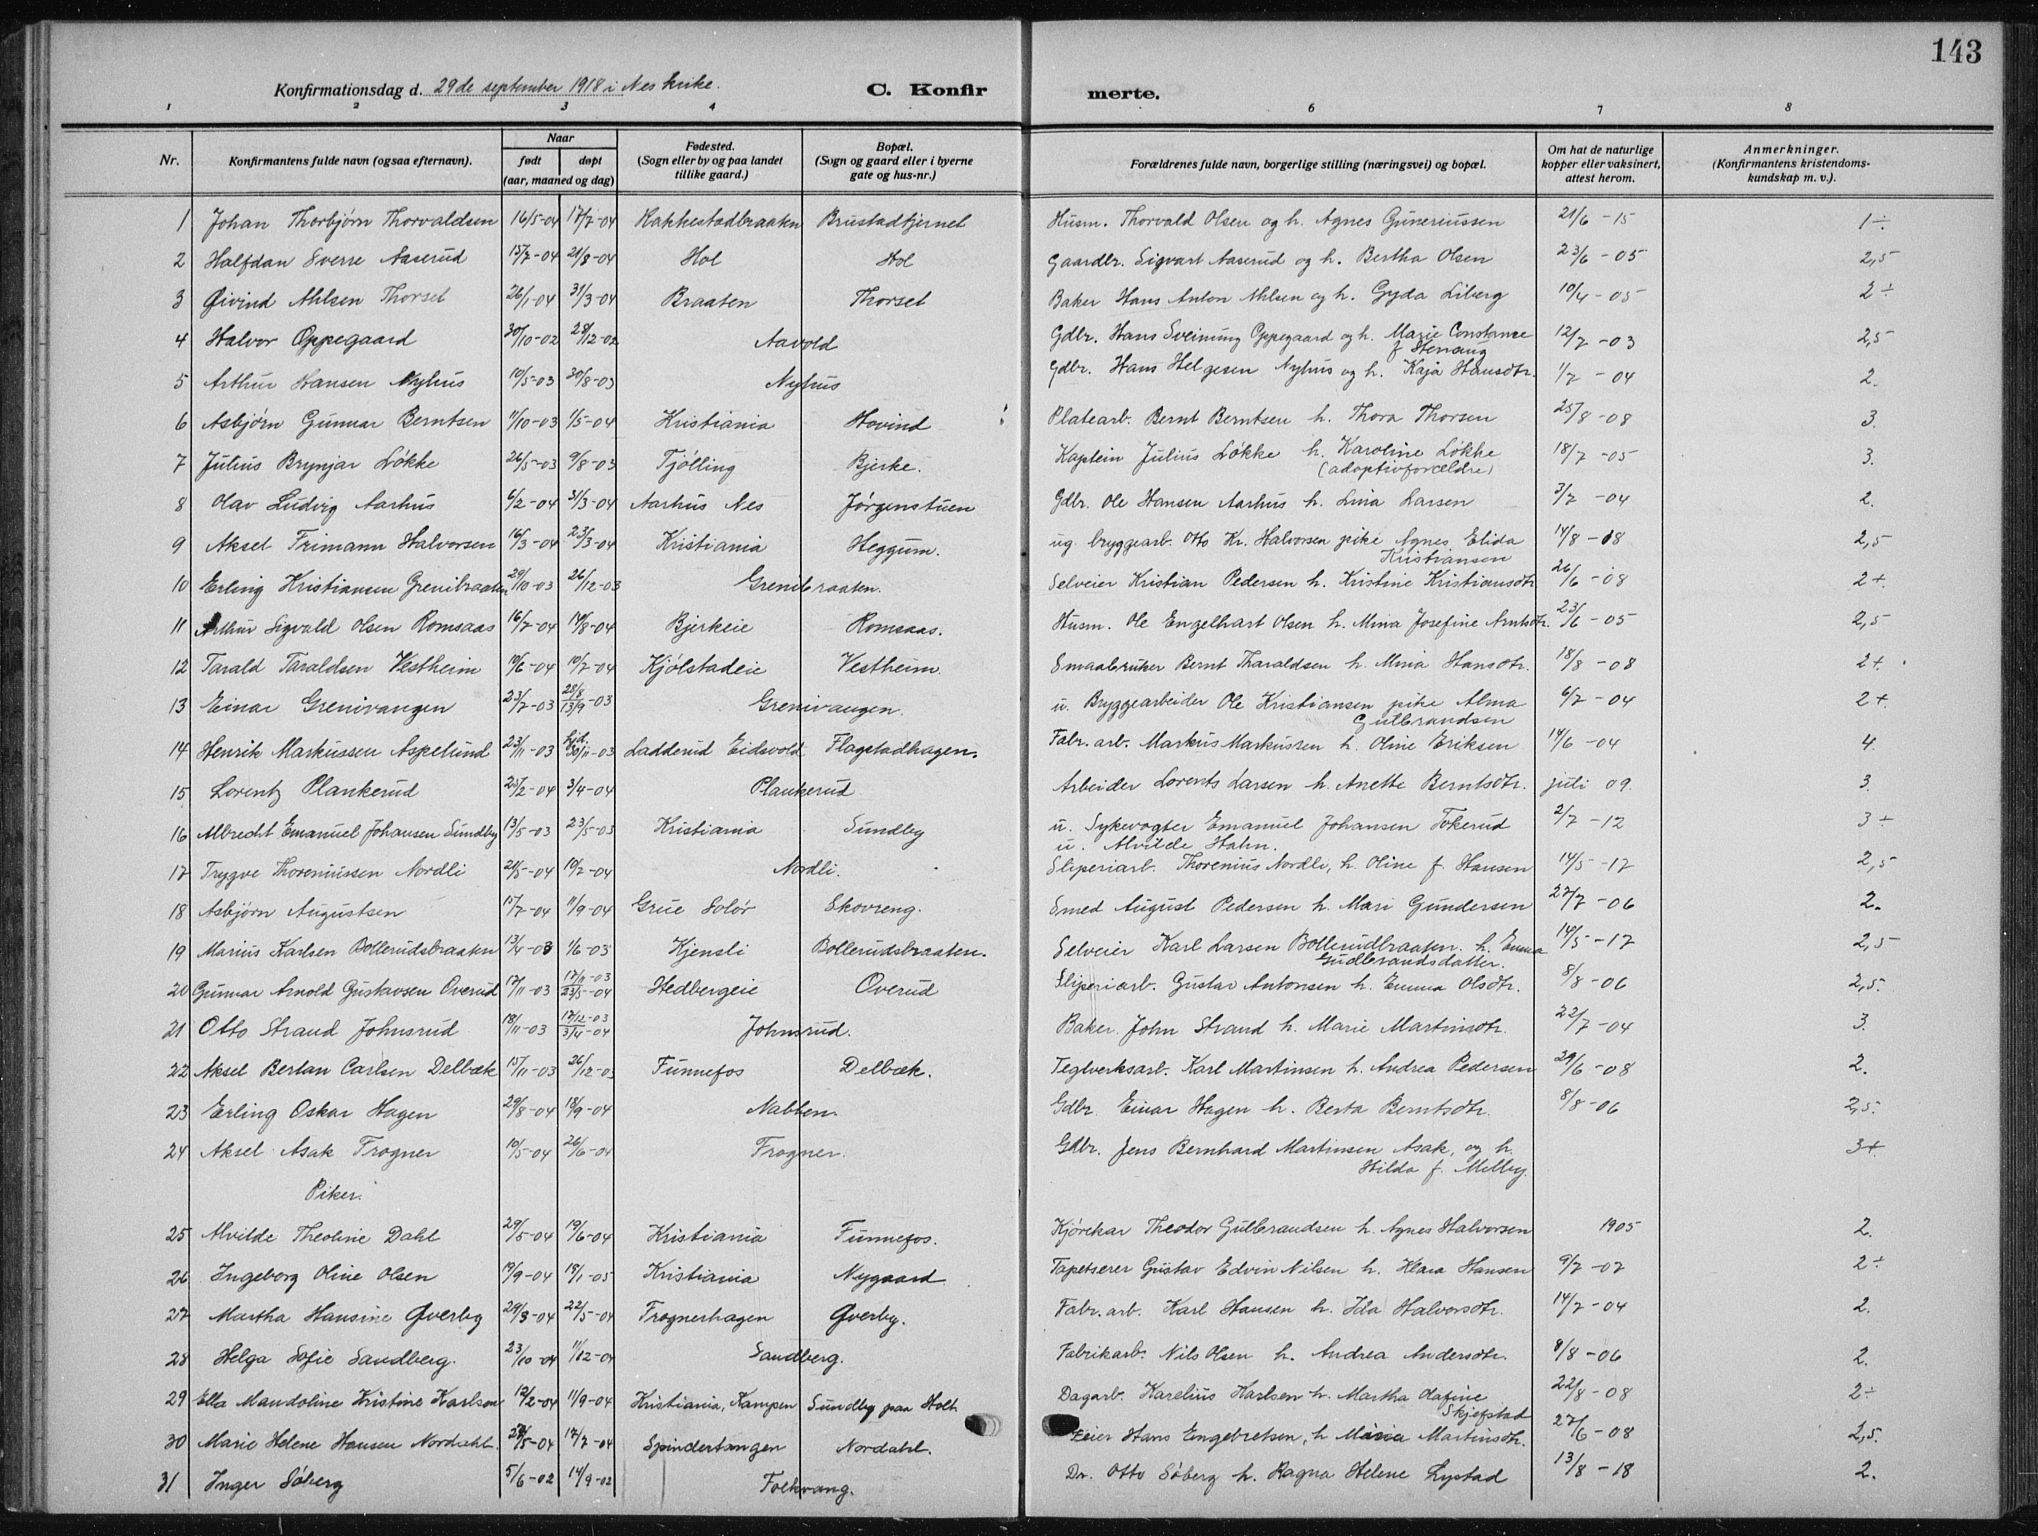 143
Konfirmationsdag d. 29de september 1918 i Nes kirke.
C. Konfirmerte.
1 2 3 4 6 7 8
Nr. | Konfirmantens fulde navn (ogsaa efternavn). | Naar født | døpt (aar, maaned og dag) | Fødested. (Sogn eller by og paa landet tillike gaard.) | Bopæl. (Sogn og gaard eller i byerne gate og hus-nr.) | Forældrenes fulde navn, borgerlige stilling (næringsvei) og bopæl. | Om hat de naturlige kopper eller vaksinert, attest herom. | Anmerkninger. (Konfirmantens kristendoms-kundskap m. v.).
1 Johan Thorbjørn Thorvaldsen 16/5-04 17/7-04 Kakkestadbraaten Brustadtjernet Husm. Thorvald Olsen og h. Agnes Guneriussen 21/6-15 1÷.
2 Halfdan Sverre Aaserud 15/7-04 21/8-04 Hol Hol Gaardbr. Sigvart Aaserud og h. Bertha Olsen 23/6-05 2,5
3 Øivind Ahlsen Thorset 26/1-04 31/3-04 Braaten Thorset Baker Hans Anton Ahlsen og h. Gyda Liberg 10/4-05 2÷
4 Halvor Oppegaard 30/10-02 28/12-02 Aavold Gdbr. Hans Sveinung Oppegaard og h. Marie Constance f. Stenaug 12/7-03 2,5
5 Arthur Hansen Nyhus 10/5-03 30/8-03 Nyhus Gdbr. Hans Helgesen Nyhus og h. Kaja Hansdtr. 1/7-04 2.
6 Asbjørn Gunnar Berntsen 11/10-03 1/5-04 Kristiania Hovind Platearb. Bernt Berntsen h. Thora Thorsen 25/8-08 3.
7 Julius Brynjar Løkke 26/5-03 9/8-03 Tjølling Bjerke. Kaptein Julius Løkke h. Karoline Løkke (adoptivforældre) 18/7-05 3.
8 Olav Ludvig Aarhus 6/2-04 31/3-04 Aarhus Nes Jørgenstuen Gdbr. Ole Hansen Aarhus h. Lina Larsen 3/7-04 2.
9 Aksel Frimann Halvorsen 16/3-04 23/3-04 Kristiania Heggum. ug. bryggearb. Otto Kr. Halvorsen pike Agnes Elida Kristiansen 14/8-08 2,5
10 Erling Kristiansen Grenibraaten 29/10-03 26/12-03 Grenibraaten. Selveier Kristian Pedersen h. Kristine Kristiansdtr 26/6-08 2+.
11 Arthur Sigvald Olsen Romsaas 16/7-04 14/8-04 Bjerkeie Romsaas. Husm. Ole Engelhart Olsen h. Mina Josefine Arntsdtr. 23/6-05 2,5
12 Tarald Taraldsen Vestheim 10/6-04 10/7-04 Kjølstadeie Vestheim. Smaabruker Bernt Tharaldsen h. Mina Hansdtr. 18/8-08 2+.
13 Einar Grenivangen 23/7-03 28/8 13/9-03 Grenivangen. u. Bryggearbeider Ole Kristiansen pike Alma Gulbrandsen 6/7-04 2+.
14 Henrik Markussen Aspelund 23/11-03 hjd. 30/11-03 Ladderud Eidsvold Flagstadhagen. Fabr.arb. Markus Markussen h. Oline Eriksen 14/6-04 4.
15 Lorentz Plankerud 25/2-04 3/4-04 Plankerud Arbeider Lorents Larsen h. Anette Berntsdtr. juli 09. 3.
16 Albrecht Emanuel Johansen Sundby 13/5-03 23/5-03 Kristiania Sundby u. Sykevogter Emanuel Johansen Tokerud u. Alvilde Hahn. 2/7-12 3÷
17 Trygve Thoreniussen Nordli 21/5-04 10/7-04 Nordli. Sliperiarb. Thorenius Nordli, h. Oline f. Hansen 14/5-17 2,5
18 Asbjørn Augustsen 15/7-04 11/9-04 Grue Solør Skovreng. Smed August Pedersen h. Mari Gundersen 27/7-06 2.
19 Marius Karlsen Bollerudsbraaten 13/4-03 1/6-03 Kjensli Bollerudsbraaten. Selveier Karl Larsen Bollerudbraaten. h. Emma Gudbrandsdatter. 14/5-17 2,5
20 Gunnar Arnold Gustavsen Overud 17/11-03 17/11-03 23/5-04 Hedbergeie Overud Sliperiarb. Gustav Antonsen h. Emma Olsdtr. 8/8-06 2,5.
21 Otto Strand Johnsrud 18/11-03 17/12-03 3/4-04 Johnsrud. Baker. John Strand h. Marie Martinsdtr. 22/7-04 3.
22 Aksel Bertan Carlsen Delbæk 15/11-03 26/12-03 Funnefos Delbæk. Teglverksarb. Karl Martinsen h. Andrea Pedersen 29/6-08 2.
23 Erling Oskar Hagen 29/8-04 18/9-04 Nabben Gdbr. Einar Hagen h. Berta Berntsdtr. 8/8-06 2,5.
24 Aksel Asak Frogner 10/5-04 26/6-04 Frogner. Gdbr. Jens Bernhard Martinsen Asak, og h. Hilda f. Melby. 3+.
Piker.
25 Alvilde Theoline Dahl 29/5-04 19/6-04 Kristiania Funnefos. Kjørekar Theodor Gulbrandsen h. Agnes Halvorsen 1905 2.
26 Ingeborg Oline Olsen 19/9-04 18/1-05 Kristiania Nygaard Tapetserer Gustav Edvin Nilsen h. Klara Hansen 9/7-07 2÷
27 Martha Hansine Gverby 29/3-04 22/5-04 Frognerhagen Gverby. Fabr.arb. Karl Hansen h. Ida Halvorsdtr. 14/7-04 2.
28 Helga Sofie Sandberg. 23/10-04 11/12-04 Sandberg. Fabrikarb. Nils Olsen h. Andrea Andersdtr. 8/8-06 2.
29 Ella Mandoline Kristine Karlsen 12/2-04 11/9-04 Kristiania, Kampen Sundby paa Holt Dagarb. Karelius Karlsen h. Martha Olafine Skjefstad 22/8-08 2÷
30 Marie Helene Hansen Nordahl. 28/5-04 17/7-04 Spindertangen Nordahl. Eier Hans Engebretsen, h. Maria Martinsdtr. 27/6-08 2,5.
31 Inger Søberg 5/6-02 14/9-02 Folkvang. Dr. Otto Søberg h. Ragna Helene Lystad 13/8-18 2.